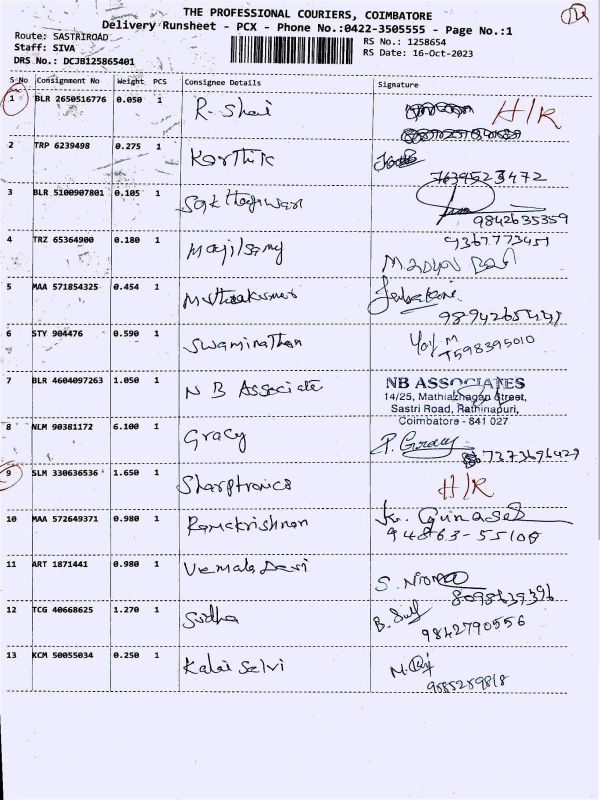 THE PROFESSIONAL COURIERS, COIMBATORE
Delivery Runsheet - PCX - Phone No.:0422-3505555 - Page No.:1
Route: SASTRIROAD
Staff: SIVA
DRS No.: DCJB125865401
RS No.: 1258654
RS Date: 16-Oct-2023
S.No Consignment No Weight PCS Consignee Details Signature
1 BLR 2650516776 0.050 1 R. Shai H/R
2 TRP 6239498 0.275 1 Karthik
7639523472
3 BLR 5100907801 0.105 1 Saktheswari
9842635359
4 TRZ 65364900 0.180 1 Majilsamy 9367773451
5 MAA 571854325 0.454 1 Muthukumar
6 STY 904476 0.590 1 Swaminathan
7598395010
7 BLR 4604097263 1.050 1 N B Associate NB ASSOCIATES
14/25, Mathiazhagan Street,
Sastri Road, Rathinapuri,
Coimbatore - 641 027
8 NLM 90381172 6.100 1 Gracy P. Gracy
7373696429
9 SLM 330636536 1.650 1 Sharptronics H/R
10 MAA 572649371 0.980 1 Ramakrishnan K. Gunasek
94863-55108
11 ART 1871441 0.980 1 Vemala Devi
8098639396
12 TCG 40668625 1.270 1 Sudha
9842790556
13 KCM 50055034 0.250 1 Kalai Selvi
9585259818